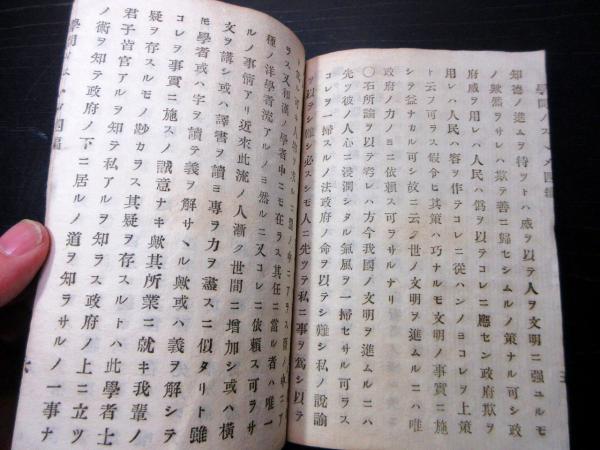 學問ノスヽメ四編
知德ノ進ムヲ待ツトハ威ヲ以テ人ヲ文明ニ强ユルモ
ノ歟然ラサレハ欺テ善ニ歸セシムルノ策ナル可シ政
府威ヲ用レハ人民ハ僞ヲ以テコレニ應セン政府欺ヲ
用レハ人民ハ容ヲ作テコレニ從ハンノミコレヲ上策
ト云フ可ラス假令ヒ其策ハ巧ナルモ文明ノ事實ニ施
シテ益ナカル可シ故ニ云ク世ノ文明ヲ進ムルニハ唯
政府ノ力ノミニ依賴ス可ラサルナリ
〇右所論ヲ以テ考レハ方今我國ノ文明ヲ進ムルニハ
先ツ彼ノ人心ニ浸潤シタル氣風ヲ一掃セサル可ラス
コレヲ一掃スルノ法政府ノ命ヲ以テシ難シ私ノ說諭
ヲ以テシ難シ必スシモ人ニ先ツテ私ニ事ヲ爲シ以テ
ラス又和漢ノ學者中ニモ在ラス其任ニ當ル者ハ唯一
種ノ洋學者流アルノミ然ルニ又コレニ依賴ス可ラサ
ルノ事情アリ近來此流ノ人漸ク世間ニ增加シ或ハ橫
文ヲ講シ或ハ譯書ヲ讀ミ專ラ力ヲ盡スニ似タリト雖
𪜈學者或ハ字ヲ讀テ義ヲ解サヽル歟或ハ義ヲ解シテ
コレヲ事實ニ施スノ誠意ナキ歟其所業ニ就キ我輩ノ
疑ヲ存スルモノ尠カラス其疑ヲ存スルトハ此學者士
君子皆官アルヲ知テ私アルヲ知ラス政府ノ上ニ立ツ
ノ術ヲ知テ政府ノ下ニ居ルノ道ヲ知ラサルノ一事ナ
學問ノスヽメ四編
六